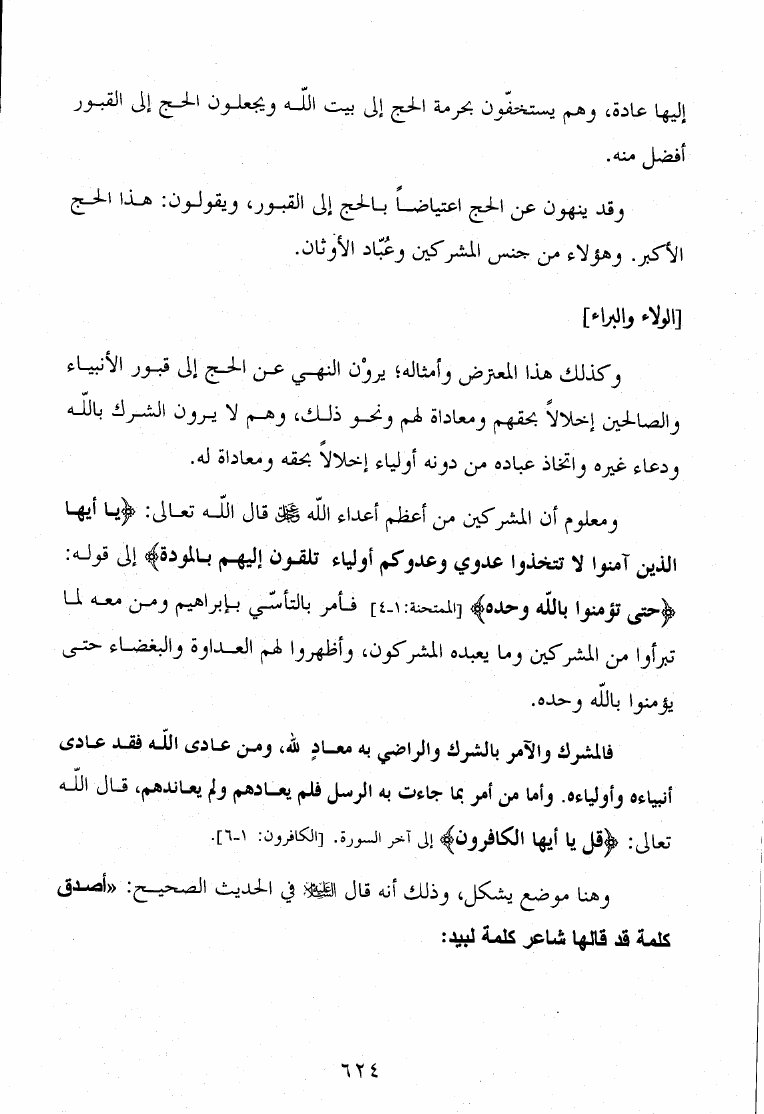 إليها عادة، وهم يستخفّون بحرمة الحج إلى بيت اللّه ويجعلون الحج إلى القبور
أفضل منه.
وقد ينهون عن الحج اعتياضاً بالحج إلى القبور، ويقولون: هذا الحج
الأكبر. وهؤلاء من جنس المشركين وعُبّاد الأوثان.
[الولاء والبراء]
وكذلك هذا المعترض وأمثاله؛ يروْن النهي عن الحج إلى قبور الأنبياء
والصالحين إخلالاً بحقهم ومعاداة لهم ونحو ذلك، وهم لا يرون الشرك باللّه
ودعاء غيره واتخاذ عباده من دونه أولياء إخلالاً بحقه ومعاداة له.
ومعلوم أن المشركين من أعظم أعداء اللّه ﷺ قال اللّه تعالى: ﴿يا أيها
الذين آمنوا لا تتخذوا عدوي وعدوكم أولياء تلقون إليهم بالمودة﴾ إلى قوله:
﴿حتى تؤمنوا باللّه وحده﴾ [الممتحنة:١-٤] فأمر بالتأسّي بإبراهيم ومن معه لما
تبرأوا من المشركين وما يعبده المشركون، وأظهروا لهم العداوة والبغضاء حتى
يؤمنوا باللّه وحده.
فالمشرك والآمر بالشرك والراضي به معادٍ للّه، ومن عادى اللّه فقد عادى
أنبياءه وأولياءه. وأما من أمر بما جاءت به الرسل فلم يعادهم ولم يعاندهم، قال اللّه
تعالى: ﴿قل يا أيها الكافرون﴾ إلى آخر السورة. [الكافرون: ١-٦].
وهنا موضع يشكل، وذلك أنه قال الطَّيْلَة في الحديث الصحيح: «أصدق
كلمة قد قالها شاعر كلمة لبيد:
٦٢٤